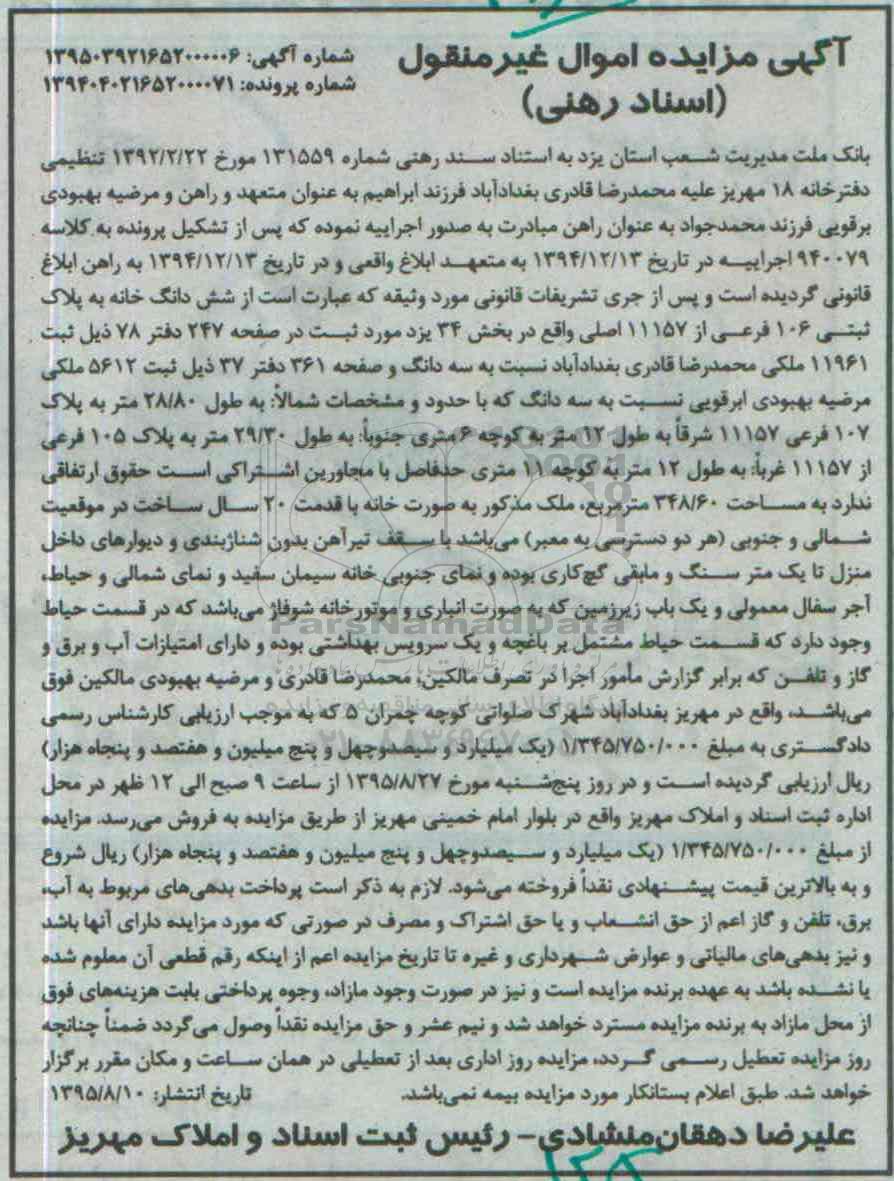 آگهی مزایده اموال غیرمنقول
(اسناد رهنی)
شماره آگهی: ۱۳۹۵۰۳۹۲۱۶۵۲۰۰۰۰۰۶
شماره پرونده: ۱۳۹۴۰۴۰۲۱۶۵۲۰۰۰۰۷۱
بانک ملت مدیریت شعب استان یزد به استناد سند رهنی شماره ۱۳۱۵۵۹ مورخ ۱۳۹۲/۲/۲۲ تنظیمی
دفترخانه ۱۸ مهریز علیه محمدرضا قادری بغدادآباد فرزند ابراهیم به عنوان متعهد و راهن و مرضیه بهبودی
برقویی فرزند محمدجواد به عنوان راهن مبادرت به صدور اجراییه نموده که پس از تشکیل پرونده به کلاسه
۹۴۰۰۷۹ اجراییه در تاریخ ۱۳۹۴/۱۲/۱۳ به متعهد ابلاغ واقعی و در تاریخ ۱۳۹۴/۱۲/۱۳ به راهن ابلاغ
قانونی گردیده است و پس از جری تشریفات قانونی مورد وثیقه که عبارت است از شش دانگ خانه به پلاک
ثبتی ۱۰۶ فرعی از ۱۱۱۵۷ اصلی واقع در بخش ۳۴ یزد مورد ثبت در صفحه ۲۴۷ دفتر ۷۸ ذیل ثبت
۱۱۹۶۱ ملکی محمدرضا قادری بغدادآباد نسبت به سه دانگ و صفحه ۳۶۱ دفتر ۳۷ ذیل ثبت ۵۶۱۲ ملکی
مرضیه بهبودی ابرقویی نسبت به سه دانگ که با حدود و مشخصات شمالاً: به طول ۲۸/۸۰ متر به پلاک
۱۰۷ فرعی ۱۱۱۵۷ شرقاً به طول ۱۲ متر به کوچه ۶ متری جنوباً: به طول ۲۹/۳۰ متر به پلاک ۱۰۵ فرعی
از ۱۱۱۵۷ غرباً: به طول ۱۲ متر به کوچه ۱۱ متری حدفاصل با مجاورین اشتراکی است حقوق ارتفاقی
ندارد به مساحت ۳۴۸/۶۰ مترمربع، ملک مذکور به صورت خانه با قدمت ۲۰ سال ساخت در موقعیت
شمالی و جنوبی (هر دو دسترسی به معبر) می‌باشد با سقف تیرآهن بدون شناژبندی و دیوارهای داخل
منزل تا یک متر سنگ و مابقی گچ‌کاری بوده و نمای جنوبی خانه سیمان سفید و نمای شمالی و حیاط،
آجر سفال معمولی و یک باب زیرزمین که به صورت انباری و موتورخانه شوفاژ می‌باشد که در قسمت حیاط
وجود دارد که قسمت حیاط مشتمل بر باغچه و یک سرویس بهداشتی بوده و دارای امتیازات آب و برق و
گاز و تلفن که برابر گزارش مأمور اجرا در تصرف مالکین، محمدرضا قادری و مرضیه بهبودی مالکین فوق
می‌باشد، واقع در مهریز بغدادآباد شهرک صلواتی کوچه چمران ۵ که به موجب ارزیابی کارشناس رسمی
دادگستری به مبلغ ۱/۳۴۵/۷۵۰/۰۰۰ (یک میلیارد و سیصدوچهل و پنج میلیون و هفتصد و پنجاه هزار)
ریال ارزیابی گردیده است و در روز پنج‌شنبه مورخ ۱۳۹۵/۸/۲۷ از ساعت ۹ صبح الی ۱۲ ظهر در محل
اداره ثبت اسناد و املاک مهریز واقع در بلوار امام خمینی مهریز از طریق مزایده به فروش می‌رسد. مزایده
از مبلغ ۱/۳۴۵/۷۵۰/۰۰۰ (یک میلیارد و سیصدوچهل و پنج میلیون و هفتصد و پنجاه هزار) ریال شروع
و به بالاترین قیمت پیشنهادی نقداً فروخته می‌شود. لازم به ذکر است پرداخت بدهی‌های مربوط به آب،
برق، تلفن و گاز اعم از حق انشعاب و یا حق اشتراک و مصرف در صورتی که مورد مزایده دارای آنها باشد
و نیز بدهی‌های مالیاتی و عوارض شهرداری و غیره تا تاریخ مزایده اعم از اینکه رقم قطعی آن معلوم شده
یا نشده باشد به عهده برنده مزایده است و نیز در صورت وجود مازاد، وجوه پرداختی بابت هزینه‌های فوق
از محل مازاد به برنده مزایده مسترد خواهد شد و نیم عشر و حق مزایده نقداً وصول می‌گردد ضمناً چنانچه
روز مزایده تعطیل رسمی گردد، مزایده روز اداری بعد از تعطیلی در همان ساعت و مکان مقرر برگزار
خواهد شد. طبق اعلام بستانکار مورد مزایده بیمه نمی‌باشد.
تاریخ انتشار: ۱۳۹۵/۸/۱۰
علیرضا دهقان‌منشادی- رئیس ثبت اسناد و املاک مهریز
ParsNamadData